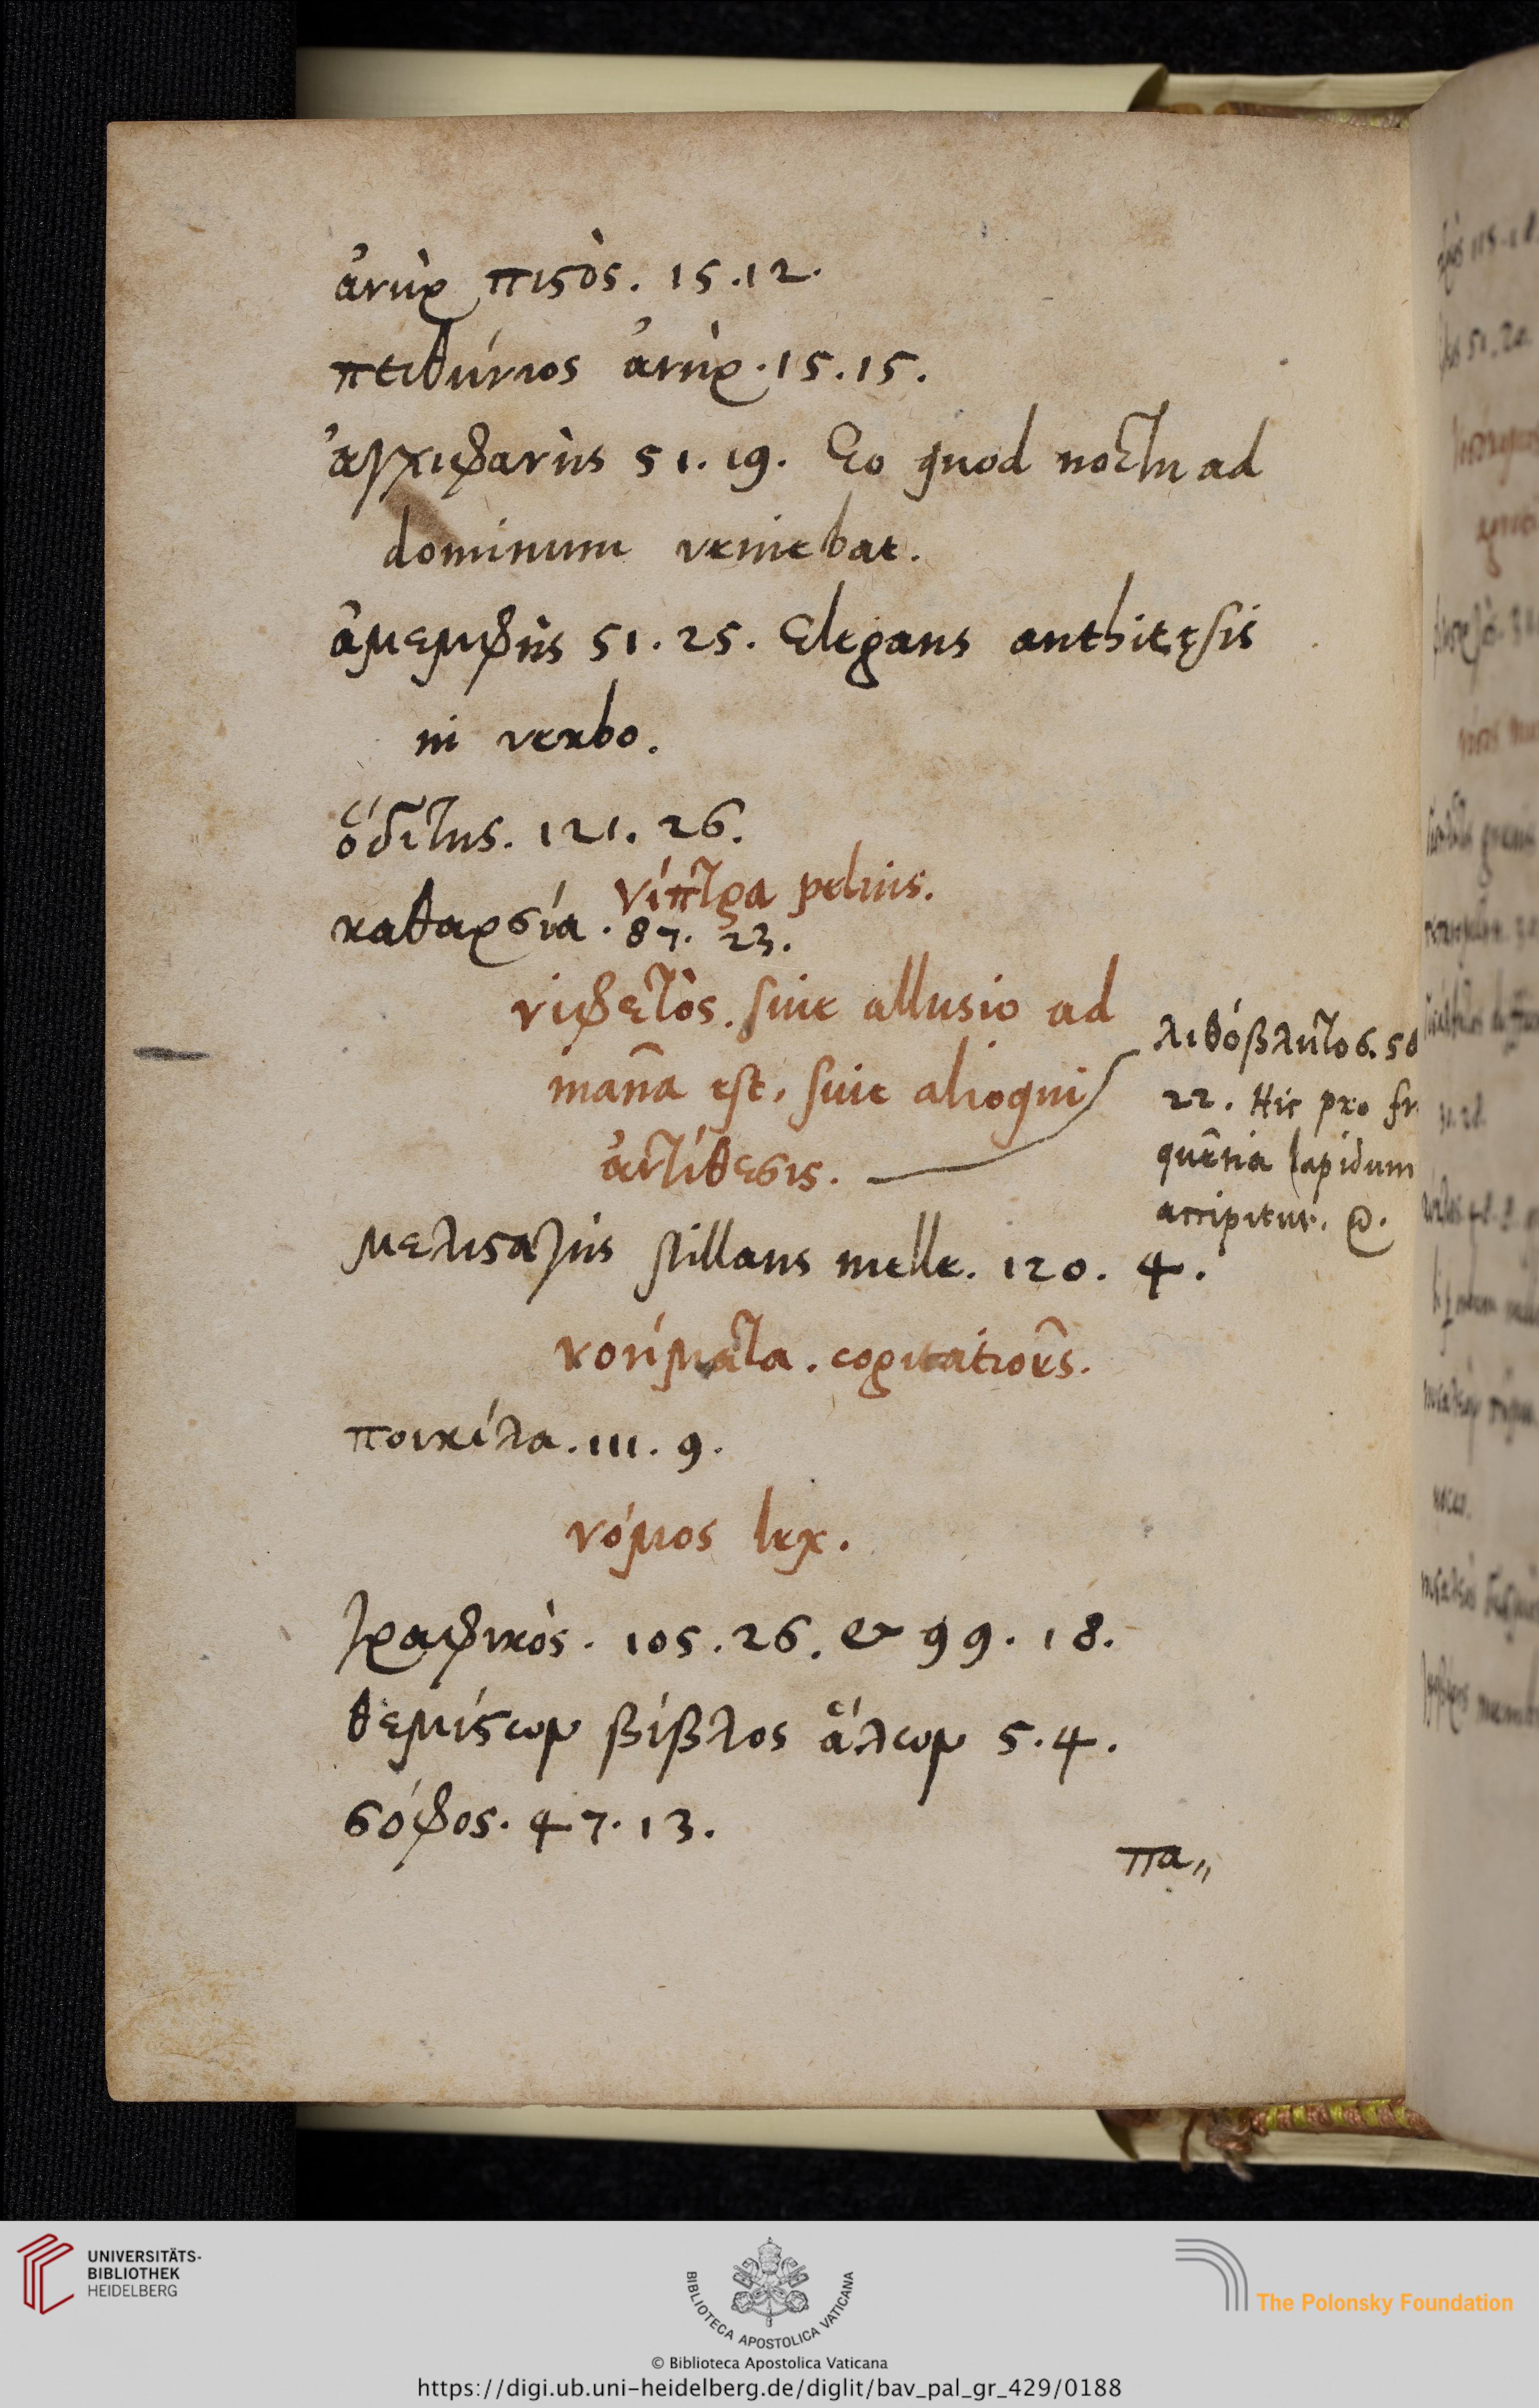 ἀνὴρ πιϛὸς. 15.12.
πειθήνιος ἀνὴρ. 15.15.
ἀγχιφανὴς 51.19. Eo quod noctu ad
dominum veniebat.
ἀμεμφὴς 51.25. Elegans anthitęsis
in verbo.
ὁδίτης. 121. 26.
νίπτρα pelvis.
καθαρσία. 87. 23.
νιφετὸς. sive allusio ad
mañа est, sive alioqui
ἀντίθεσις.
λιθόβλητος. 50
22. Hic pro fr
quẽtia lapidum
accipitur.
μελισαγὴς stillans melle. 120. 4.
νοήματα. cogitatioẽs.
ποικίλα. 111. 9.
νόμος lex.
γραφικὸς. 105.26. & 99. 18.
θεμίϛων βίβλος ἄλλων 5.4.
σόφος. 47.13.
πα„
UNIVERSITÄTS-
BIBLIOTHEK
HEIDELBERG
BIBLIOTECA APOSTOLICA VATICANA
The Polonsky Foundation
© Biblioteca Apostolica Vaticana
https://digi.ub.uni-heidelberg.de/diglit/bav_pal_gr_429/0188